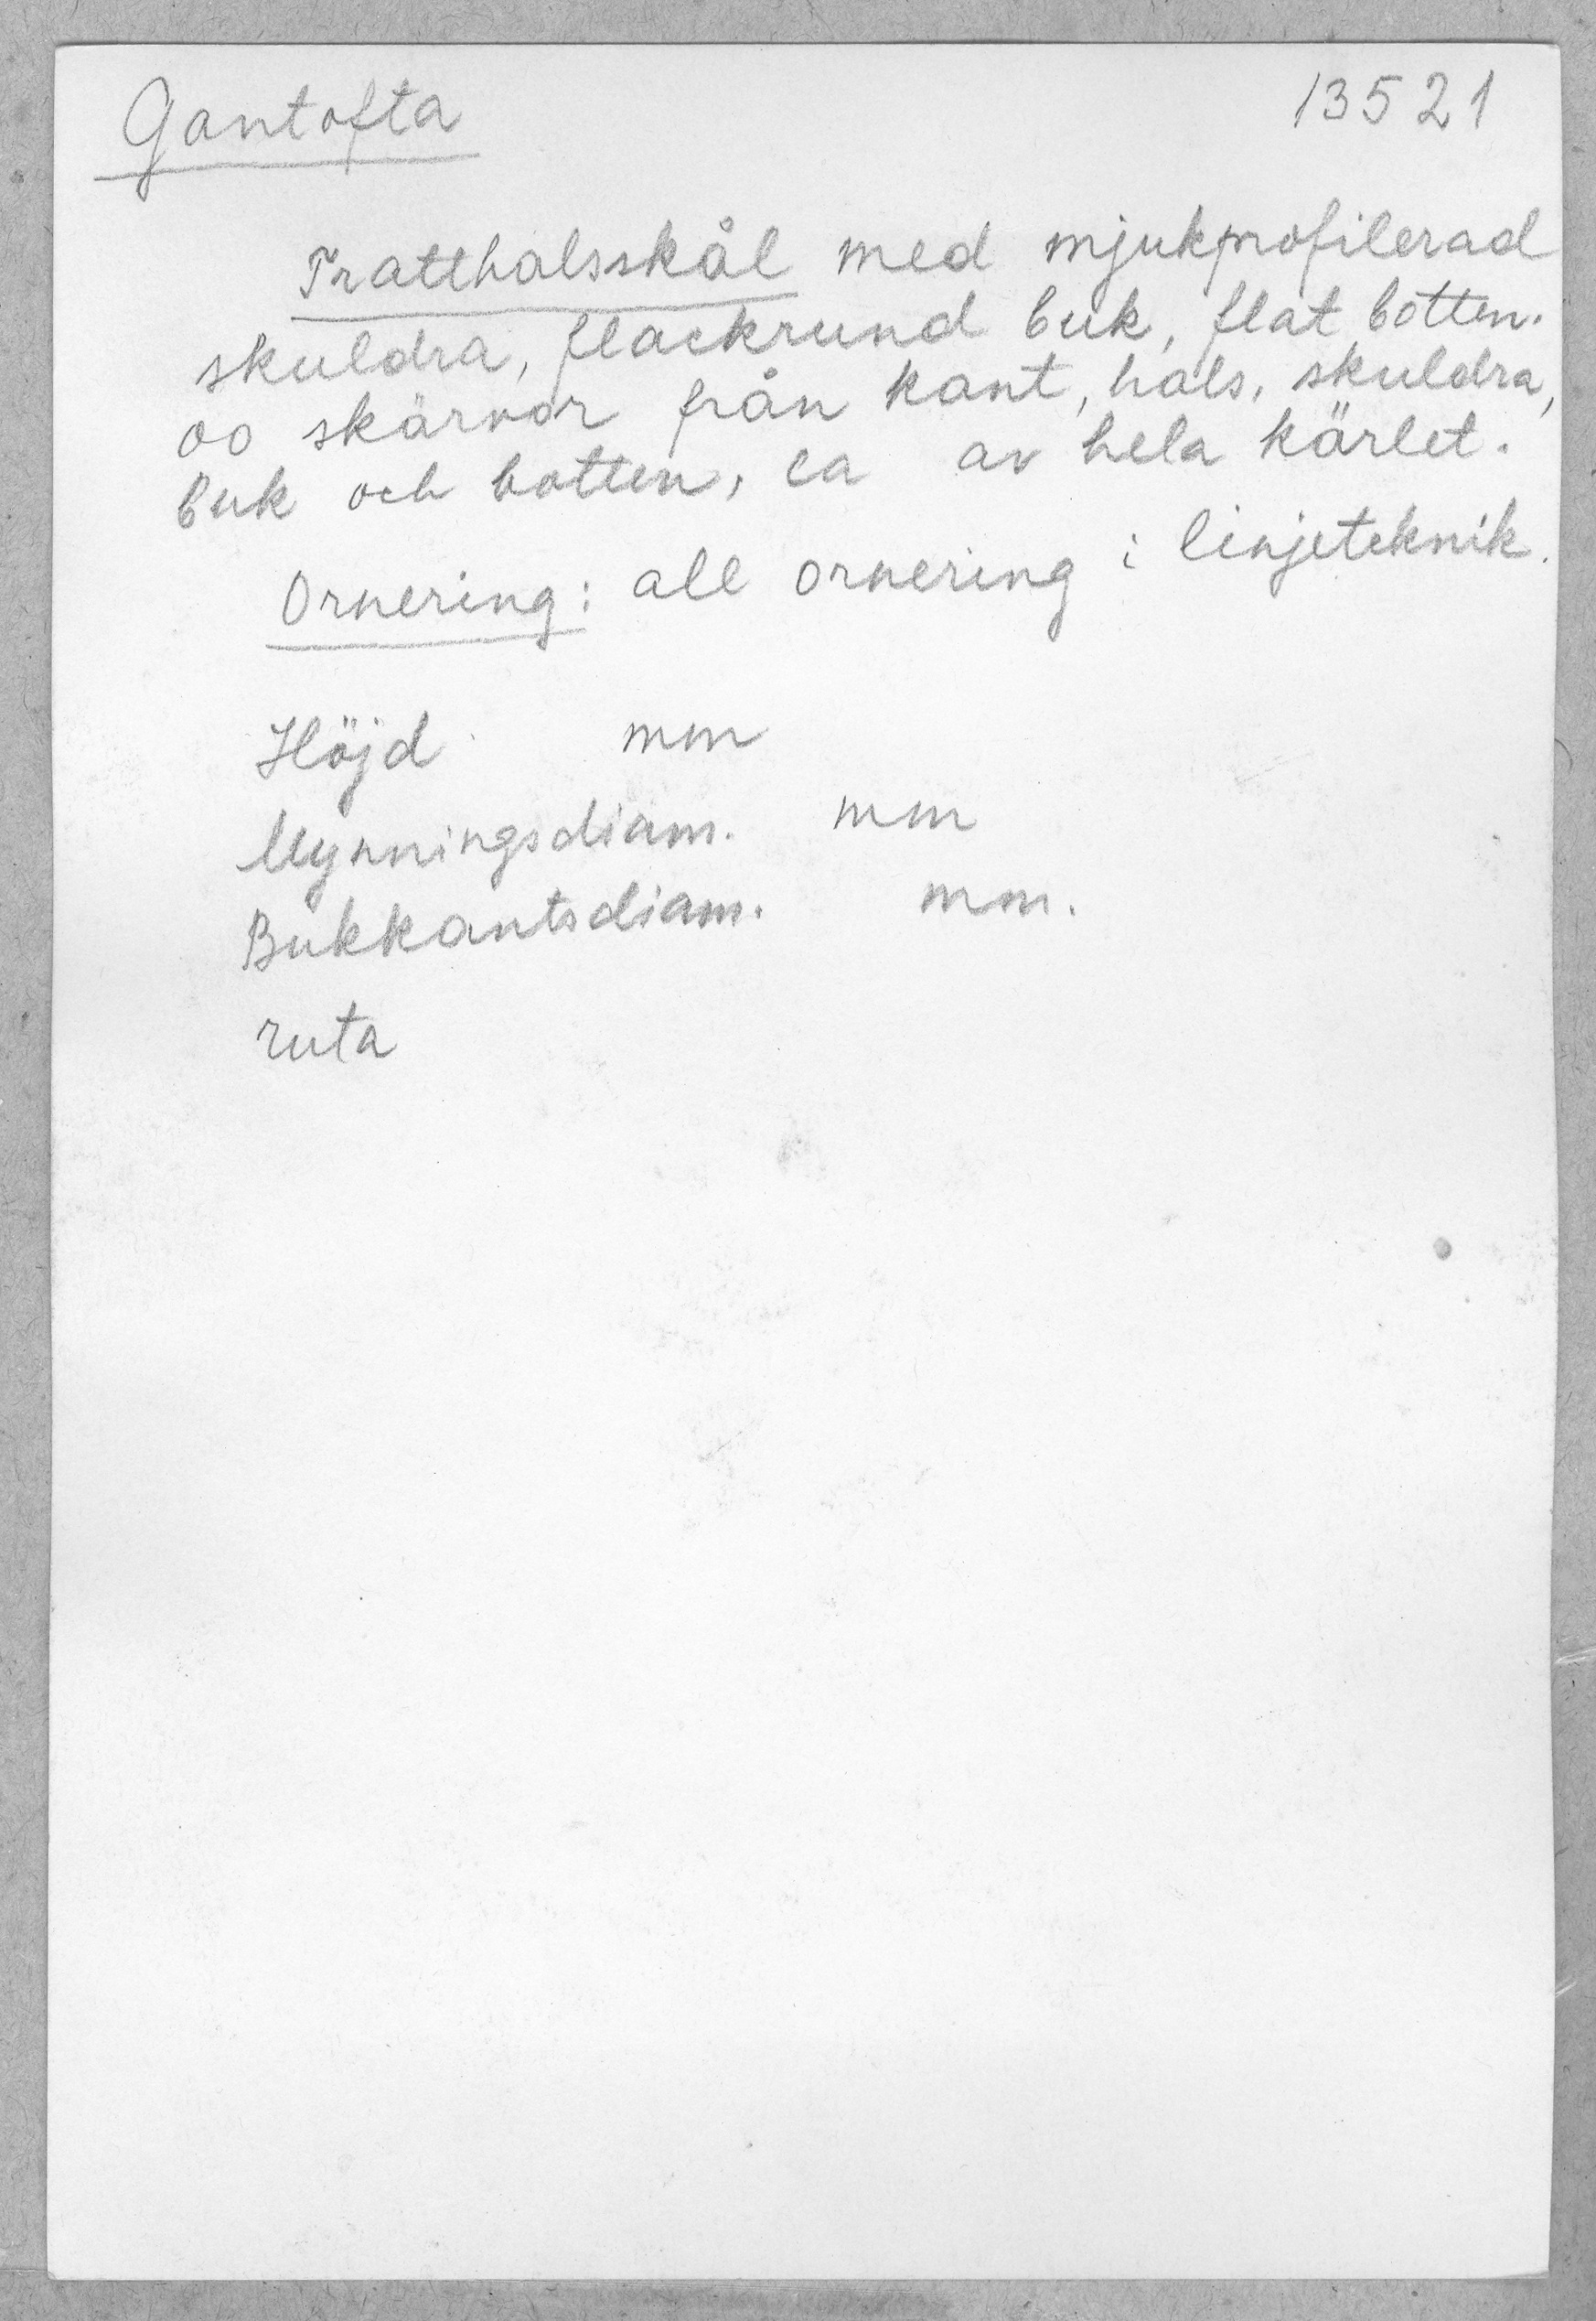 Gantofta 13521
Tratthalsskål med mjukprofilerad
skuldra, flackrund buk, flat botten.
oo skärvor från kant, hals, skuldra,
buk och botten, ca av hela kärlet.
Ornering: all ornering i linjeteknik.
Höjd mm
Mynningsdiam. mm
Bukkantsdiam. mm.
ruta